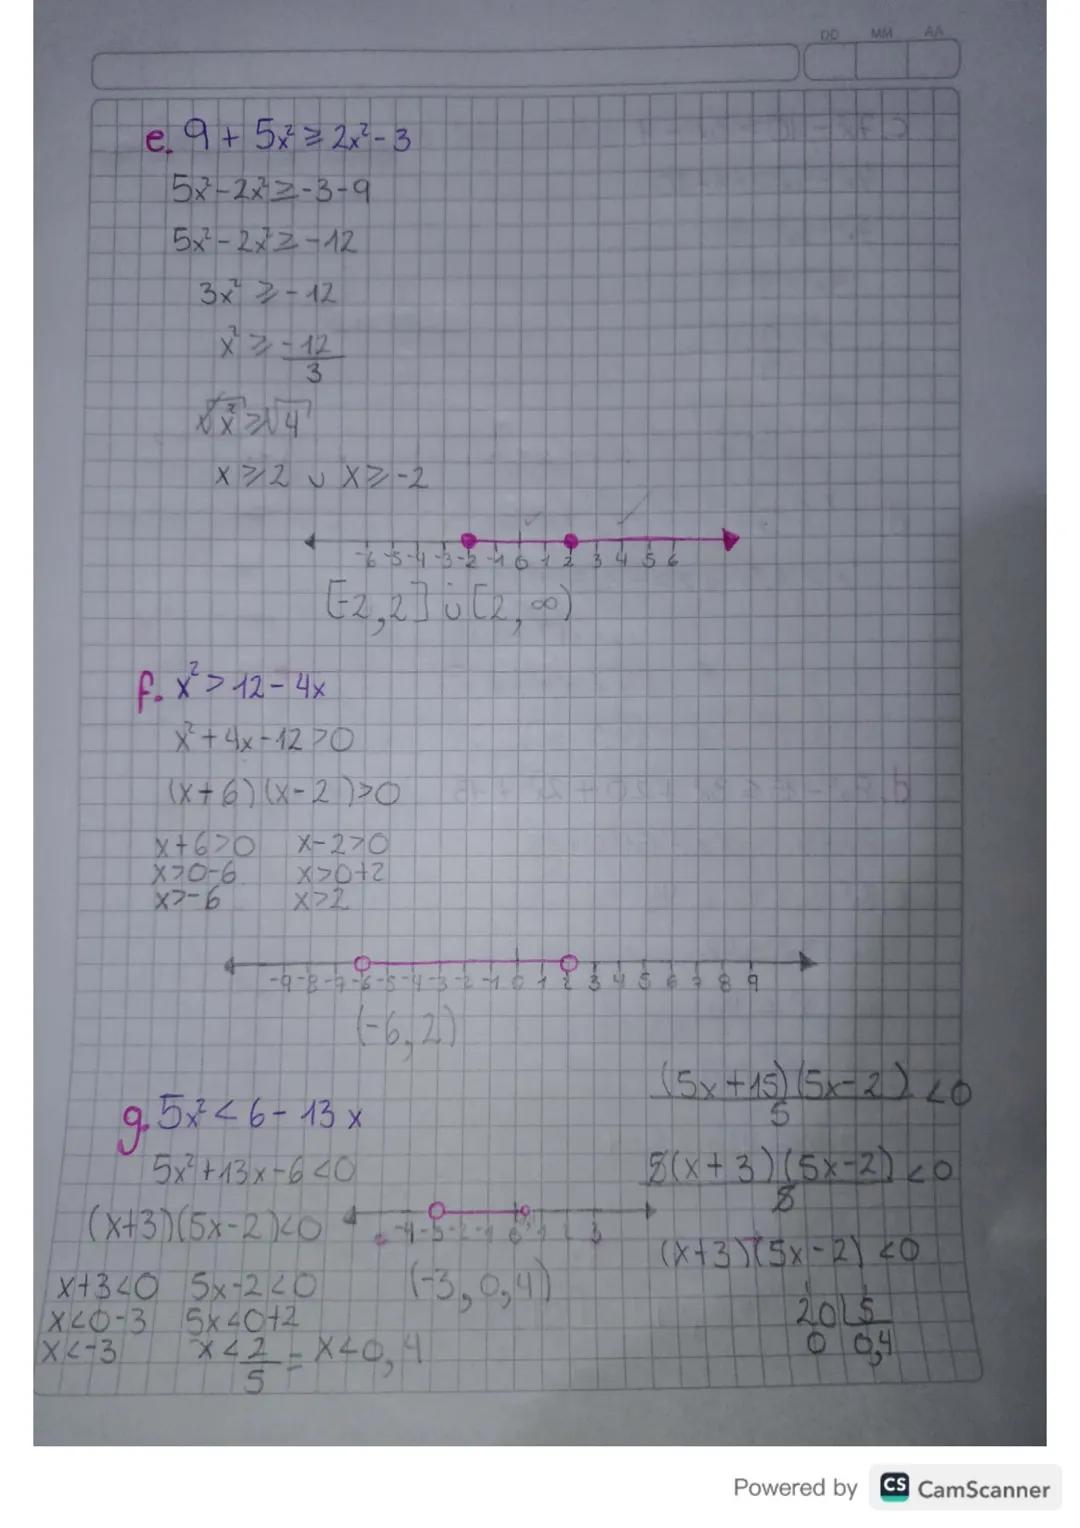 DD MM AA
e. 9 + 5x² ≥ 2x² - 3
5x² - 2x² ≥ -3 - 9
5x² - 2x² ≥ -12
3x² ≥ -12
x² ≥ -12/3
√x² ≥ √4
x ≥ 2 ∪ x ≥ -2
-6 -5 -4 -3 -2 -1 0 1 2 3 4 5 6
[-2, 2] ∪ [2, ∞)
f. x² > 12 - 4x
x² + 4x - 12 > 0
(x + 6)(x - 2) > 0
x + 6 > 0 x - 2 > 0
x > 0 - 6 x > 0 + 2
x > -6 x > 2
-9 -8 -7 -6 -5 -4 -3 -2 -1 0 1 2 3 4 5 6 7 8 9
(-6, 2)
g. 5x² < 6 - 13x
5x² + 13x - 6 < 0
(x+3)(5x-2) < 0
x+3 < 0 5x-2 < 0
x < 0-3 5x < 0+2
x < -3 x < 2/5 = x < 0,4
-4 -3 -2 -1 0 1 2 3
(-3, 0,4)
(5x + 15)(5x - 2)/5 < 0
5(x + 3)(5x - 2)/5 < 0
(x+3)(5x - 2) < 0
20 5
0 0,4
Powered by CS CamScanner